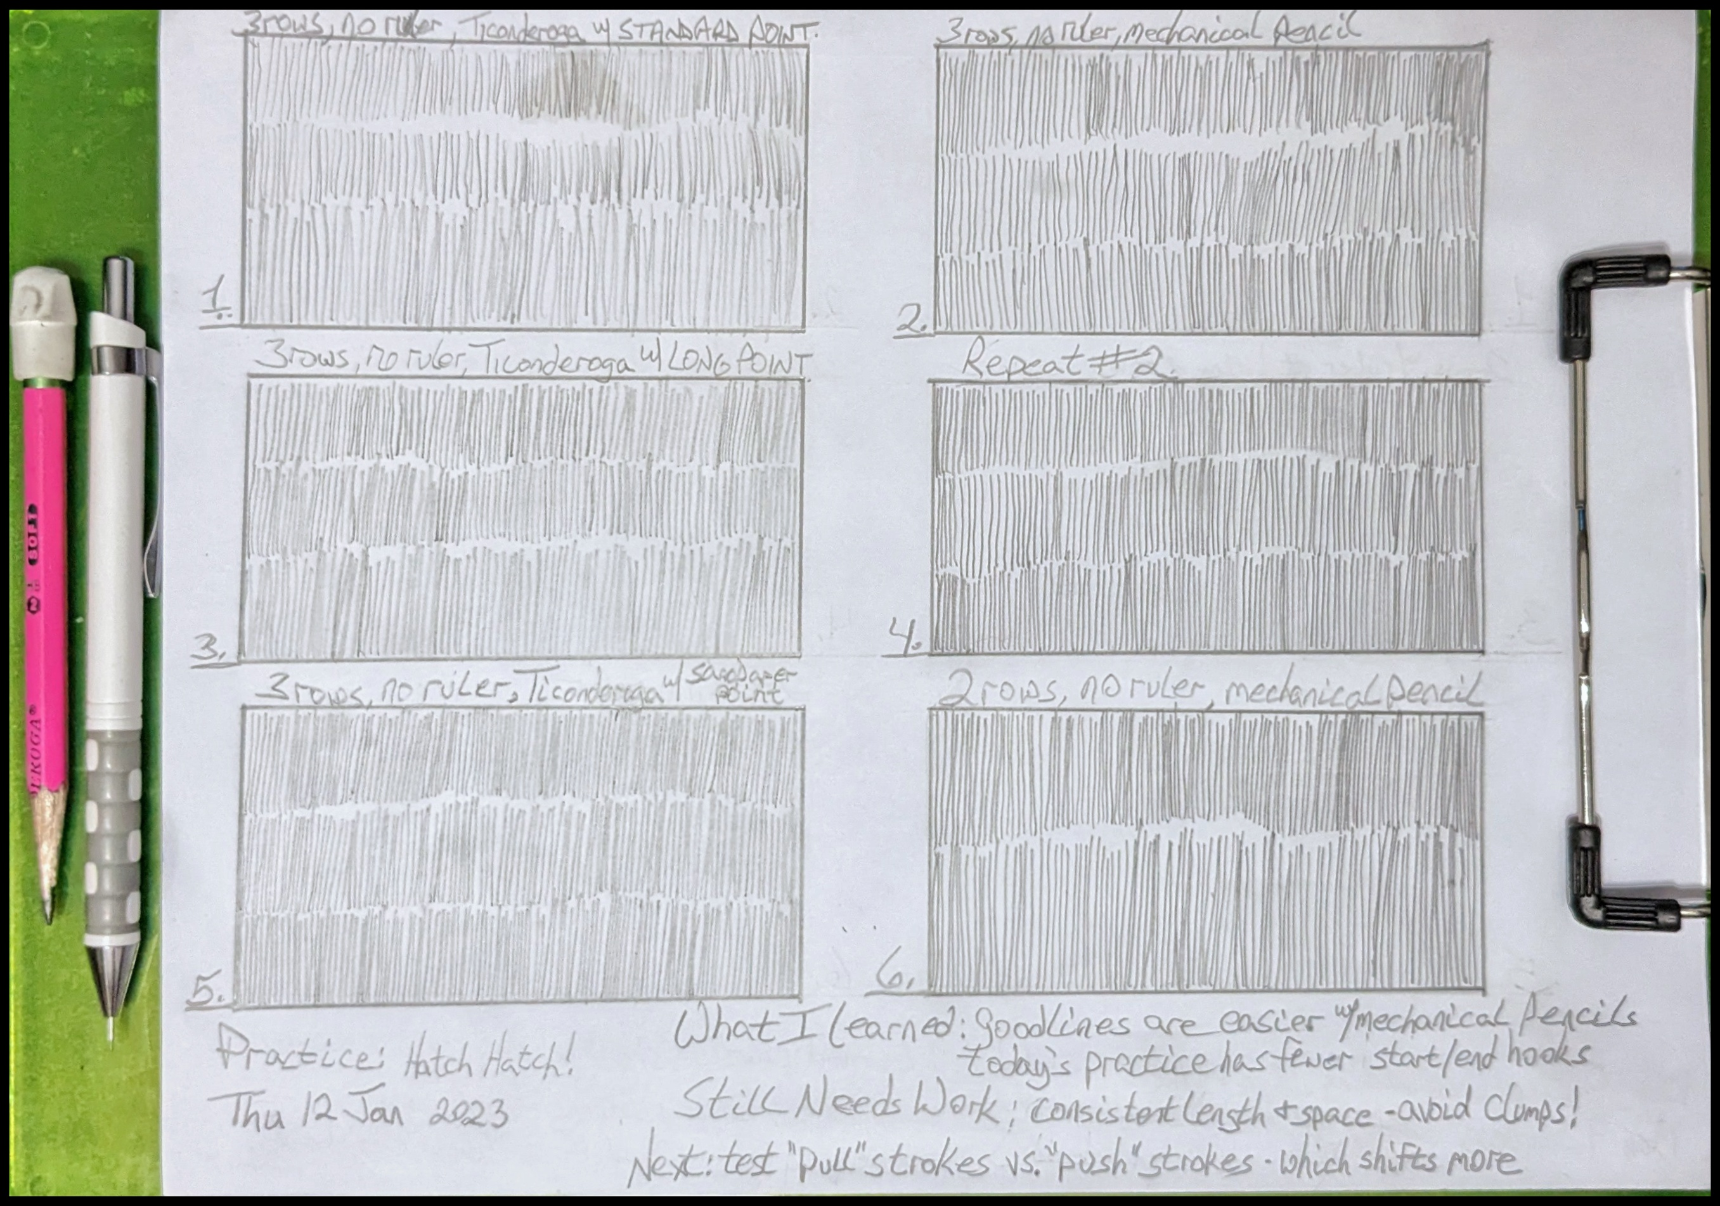 3 rows, no ruler, Ticonderoga w/ STANDARD POINT.
3 rows, no ruler, mechanical pencil
1.
2.
3 rows, no ruler, Ticonderoga w/ LONG POINT
Repeat #2.
3.
4.
3 rows, no ruler, Ticonderoga w/ sandpaper point
2 rows, no ruler, mechanical pencil
5.
6.
Practice: Hatch Hatch!
Thu 12 Jan 2023
What I learned: good lines are easier w/ mechanical pencils
today's practice has fewer start/end hooks
Still Needs Work: consistent length + space - avoid clumps!
Next: test "pull" strokes vs. "push" strokes - which shifts more